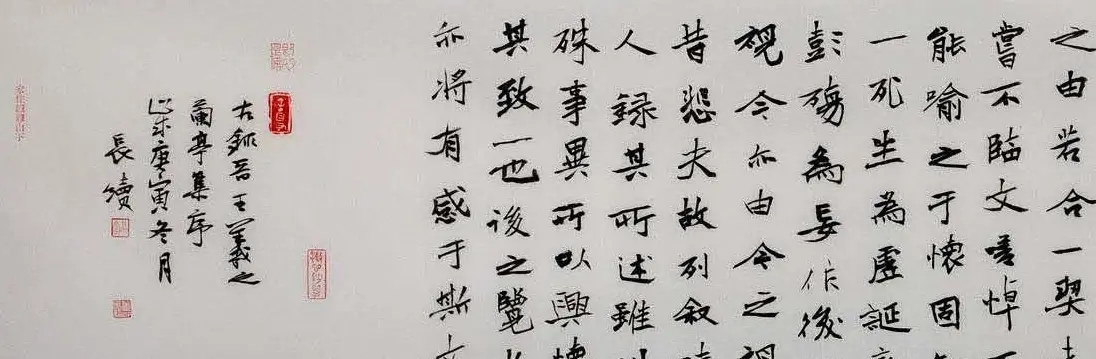 之由若合一契
嘗不臨文嗟悼
能喻之于懷固
一死生為虛誕
彭殤為妄作後
視今亦由今之視
昔悲夫故列敘時
人錄其所述雖
殊事異所以興懷
其致一也後之覽
亦將有感于斯文
右錄晉王羲之
蘭亭集序
歲庚寅冬月
長續